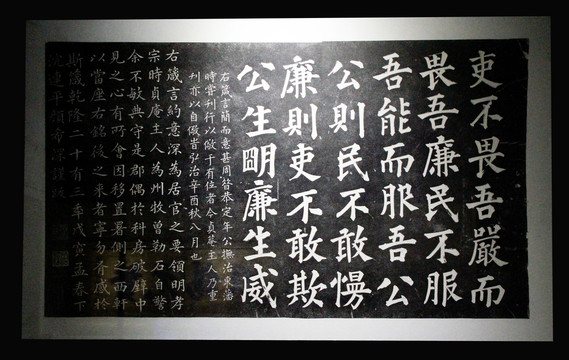 吏不畏吾嚴而
畏吾廉民不服
吾能而服吾公
公則民不敢慢
廉則吏不敢欺
公生明廉生威
右箴言簡而意甚周昔恭定年公撫治東藩
時嘗刊行以儆于有位者今貞菴主人乃重
刊亦以自儆旹弘治辛酉秋八月也
右箴言約意深為居官之要領明孝
宗時貞庵主人為州牧曾勒石自警
余不敏典守是郡偶於科房破壁中
見之心有所會因移置署側之西軒
以當座右銘後之來者寧勿有感於
斯箴乾隆二十有三年戊寅孟春下
浣連平顏希深謹